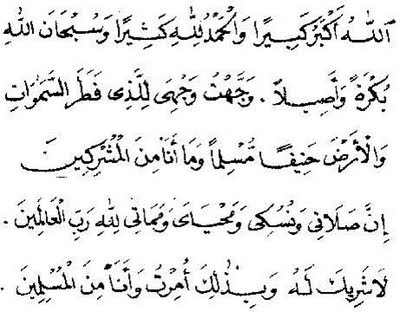 اَللّٰهُ اَكْبَرُ كَبِيرًا وَالْحَمْدُ لِلّٰهِ كَثِيرًا وَسُبْحَانَ اللهِ
بُكْرَةً وَأَصِيلاً . وَجَّهْتُ وَجْهِىَ لِلَّذِى فَطَرَ السَّمٰوَاتِ
وَالْأَرْضَ حَنِيفًا مُسْلِماً وَمَا أَنَا مِنَ الْمُشْرِكِينَ
إِنَّ صَلَاتِى وَنُسُكِى وَمَحْيَاىَ وَمَمَاتِى لِلّٰهِ رَبِّ الْعَالَمِينَ .
لَاشَرِيكَ لَهُ وَبِذٰلِكَ أُمِرْتُ وَأَنَا مِنَ الْمُسْلِمِينَ .